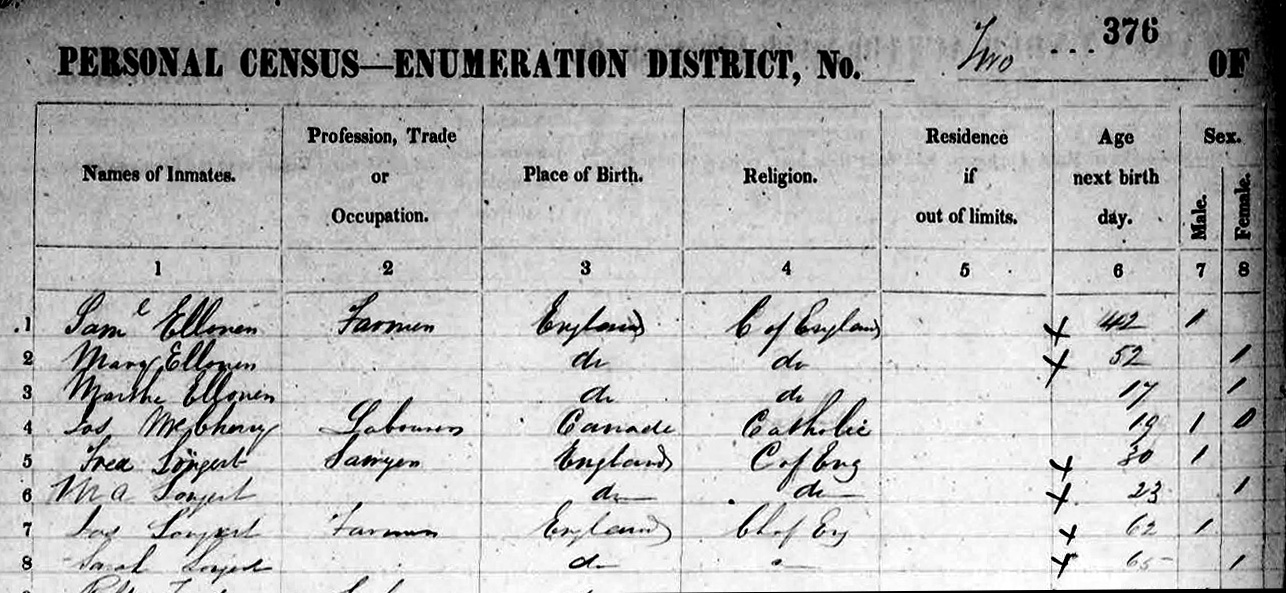 376
PERSONAL CENSUS—ENUMERATION DISTRICT, No. Two ... OF
Names of Inmates. Profession, Trade or Occupation. Place of Birth. Religion. Residence if out of limits. Age next birth day. Sex. Male. Female.
1 2 3 4 5 6 7 8
1 Saml Elloner Farmer England C of England x 42 1
2 Mary Elloner do do x 52 1
3 Martha Elloner do do 17 1
4 Jos McCherry Labourer Canada Catholic 19 1 0
5 Fred Songert Sawyer England C of Eng x 30 1
6 M A Songert do do x 23 1
7 Jos Songert Farmer England Ch of Eng x 62 1
8 Sarah Songert do x 65 1